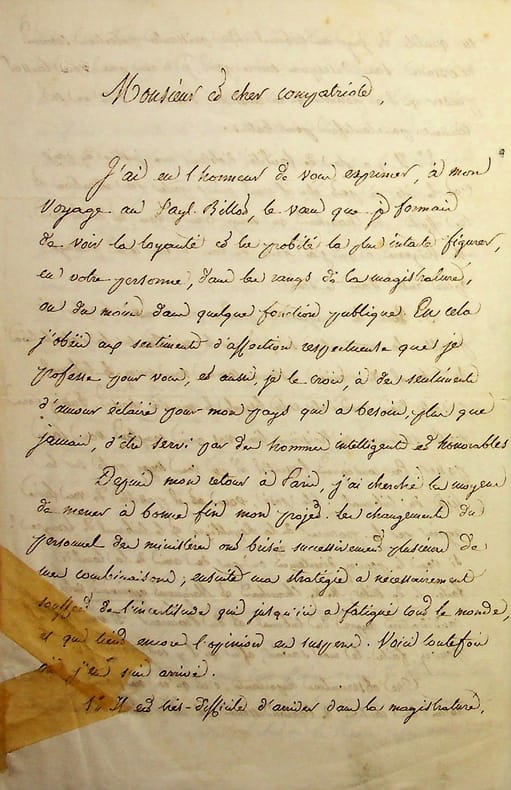 Monsieur et cher compatriote,
J'ai eu l'honneur de vous exprimer, à mon
voyage au Payl-Billot, le vœu que je formais
de voir la loyauté et la probité la plus intacte figurer,
en votre personne, dans les rangs de la magistrature,
ou du moins dans quelque fonction publique. En cela
j'obéis aux sentiments d'affection respectueuse que je
professe pour vous, et aussi, je le crois, à des sentiments
d'amour éclairé pour mon pays qui a besoin, plus que
jamais, d'être servi par des hommes intelligents et honorables
Depuis mon retour à Paris, j'ai cherché les moyens
de mener à bonne fin mon projet. Les changements du
personnel des ministères ont brisé successivement plusieurs de
mes combinaisons ; ensuite ma stratégie a nécessairement
souffert de l'incertitude qui jusqu'ici a fatigué tout le monde,
et qui tient encore l'opinion en suspens. Voici toutefois
où j'en suis arrivé.
1° Il est très-difficile d'arriver dans la magistrature,